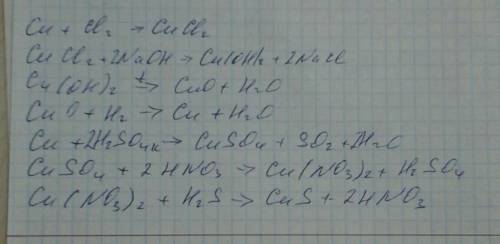 Cu + Cl₂ → CuCl₂
CuCl₂ + 2NaOH → Cu(OH)₂ + 2NaCl
Cu(OH)₂ t→ CuO + H₂O
CuO + H₂ → Cu + H₂O
Cu + 2H₂SO₄к → CuSO₄ + SO₂ + 2H₂O
CuSO₄ + 2HNO₃ → Cu(NO₃)₂ + H₂SO₄
Cu(NO₃)₂ + H₂S → CuS + 2HNO₃